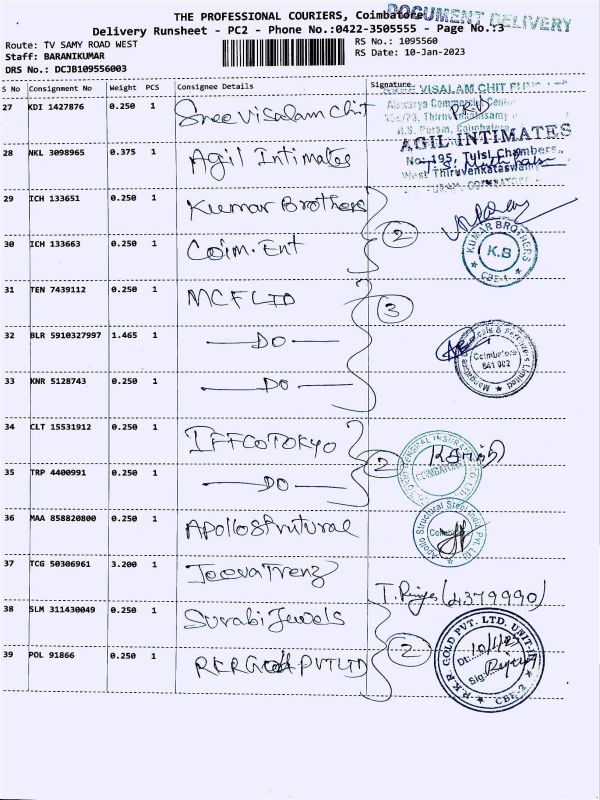 DOCUMENT DELIVERY
THE PROFESSIONAL COURIERS, Coimbatore
Delivery Runsheet - PC2 - Phone No.:0422-3505555 - Page No.:3
Route: TV SAMY ROAD WEST RS No.: 1095560
Staff: BARANIKUMAR RS Date: 10-Jan-2023
DRS No.: DCJB109556003
S No Consignment No Weight PCS Consignee Details Signature
27 KDI 1427876 0.250 1 Sree Visalam Chit
SREE VISALAM CHIT
28 NKL 3098965 0.375 1 Agil Intimates
AGIL INTIMATES
No: 195, Tulsi Chambers,
West Thiruvenkataswamy
29 ICH 133651 0.250 1 Kumar Brothers
30 ICH 133663 0.250 1 Coim. Ent 2
KUMAR BROTHERS K.B CBE-1
31 TEN 7439112 0.250 1 MCFLTD 3
32 BLR 5910327997 1.465 1 —DO—
Coimbatore
641 002
33 KNR 5128743 0.250 1 —DO—
34 CLT 15531912 0.250 1 IFFCOTOKYO
35 TRP 4400991 0.250 1 —DO— 2
36 MAA 858820800 0.250 1 Apollostrutural
Apollo Structural Steel India Pvt Ltd
37 TCG 50306961 3.200 1 JeevaTrenz
38 SLM 311430049 0.250 1 Surabi Jewels
39 POL 91866 0.250 1 RKRGold PVTLTD 2
R.K.R. GOLD PVT. LTD. UNIT-II
Dt:
Sig:
CBE-2